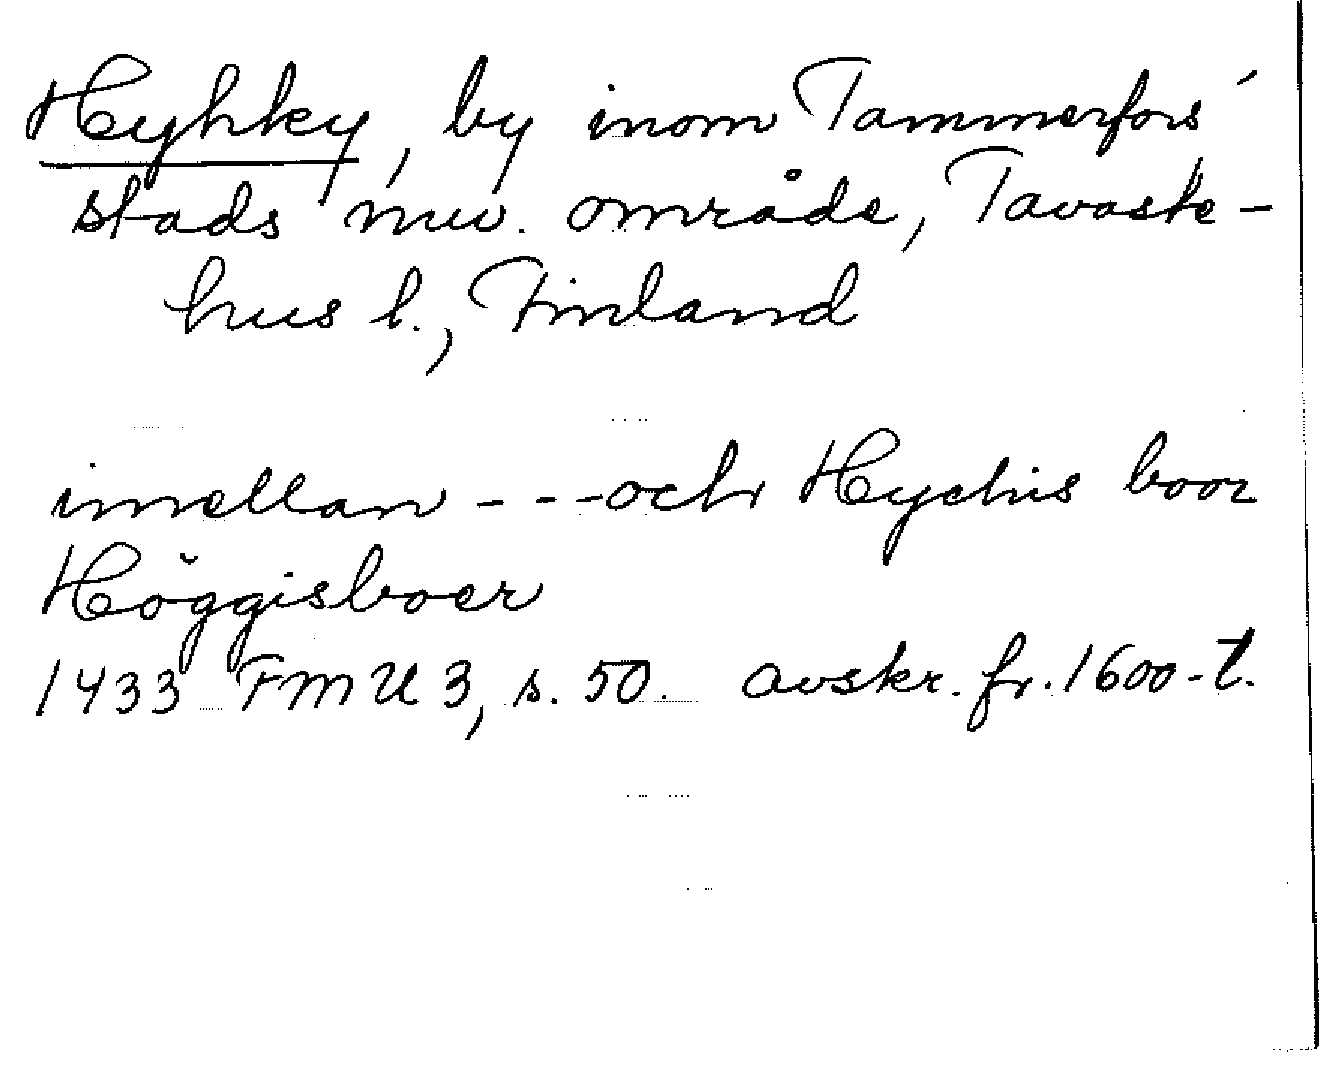 Hyhky, by inom Tammerfors'
stads nuv. område, Tavaste-
hus l., Finland
imellan - - - och Hychis boor
Höggisboer
1433 FMU 3, s. 50. avskr. fr. 1600-t.